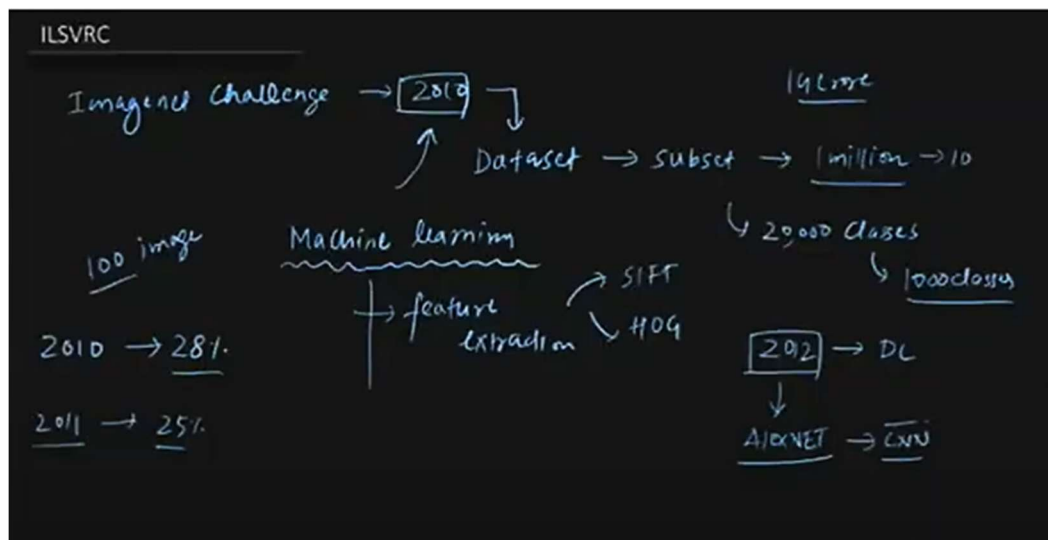 ILSVRC
Imagenet Challenge → 2010
1.4 crore
Dataset → subset → 1 million → 10
20,000 classes
1000 classes
100 image
Machine learning
→ feature extraction
SIFT
HOG
2010 → 28%
2011 → 25%
2012 → DL
AlexNET → CNN